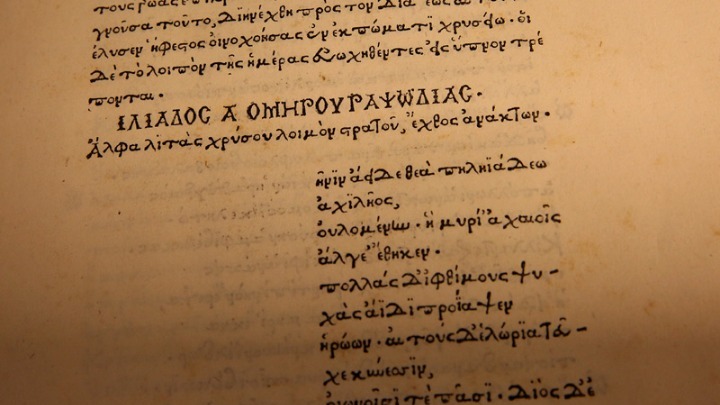 γνοῦσα τοῦτο, διηνέχθη πρὸς τὸν Δία ἕως αὐτοὺς
ἔλυσεν ἥφεστος οἰνοχοήσας ἐν ἐκπώματι χρυσέῳ· οἱ
δὲ τὸ λοιπὸν τῆς ἡμέρας εὐωχηθέντες εἰς ὕπνον τρέ
πονται.
ΙΛΙΑΔΟΣ Α ΟΜΗΡΟΥ ΡΑΨΩΔΙΑΣ.
Ἄλφα λιτὰς χρύσου λοιμὸν στρατοῦ, ἔχθος ἀνάκτων.
μῆνιν ἄειδε θεὰ πηληϊάδεω
ἀχιλῆος,
οὐλομένην· ἣ μυρί' ἀχαιοῖς
ἄλγε' ἔθηκεν.
πολλὰς δ' ἰφθίμους ψυ-
χὰς ἄϊδι προΐαψεν
ἡρώων· αὐτοὺς δ' ἑλώρια τεῦ-
χε κύνεσσιν,
οἰωνοῖσί τε πᾶσι· Διὸς δ' ἐ